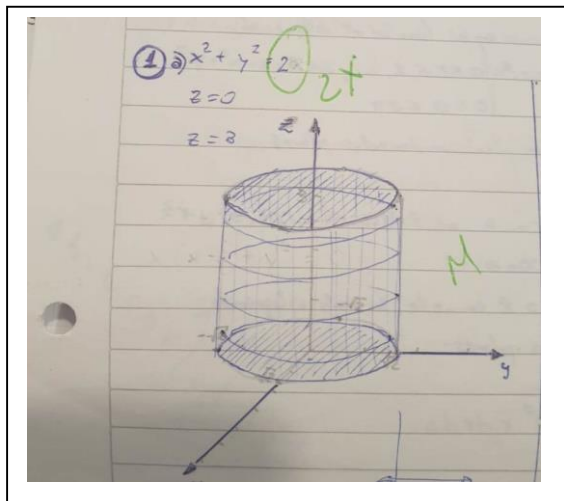 ① a) x² + y² = 2 2x
z=0
z=3
z
M
y